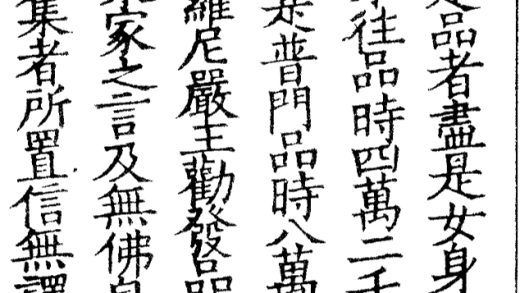 品者盡是女身
往品時四萬二千
是普門品時八萬
羅尼嚴王勸發品
家之言及無佛
集者所置信無譯